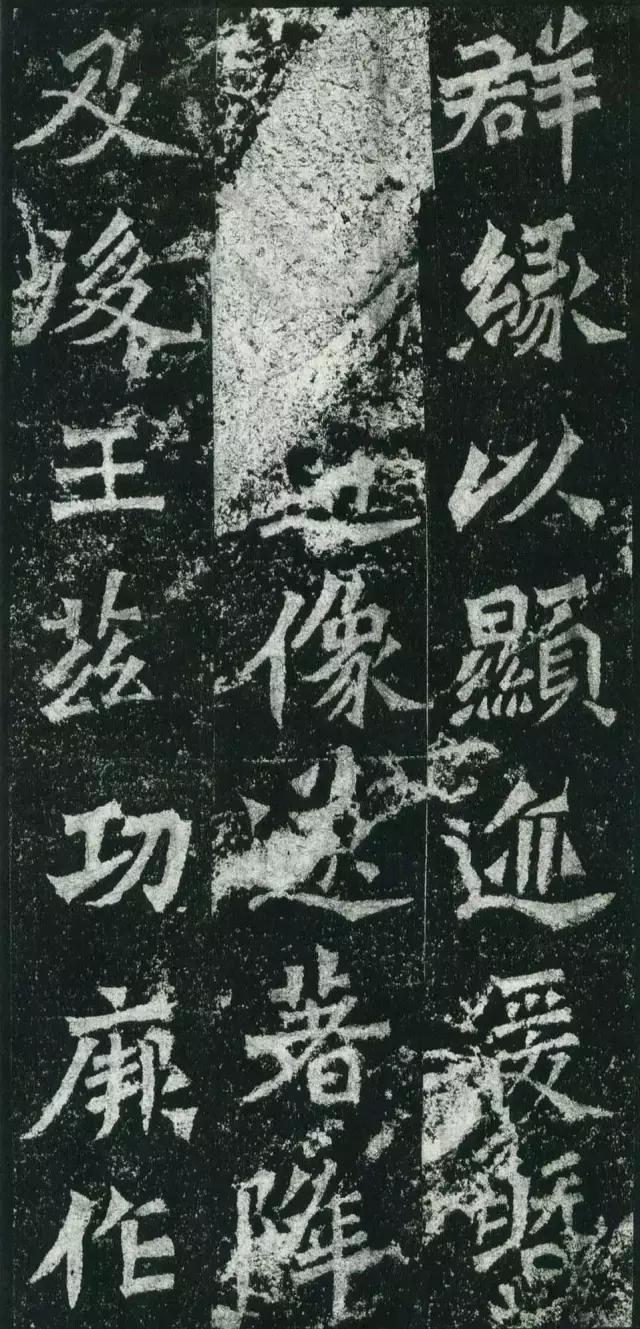 群緣以顯迹爰暨
像遂著降
及後王茲功厥作